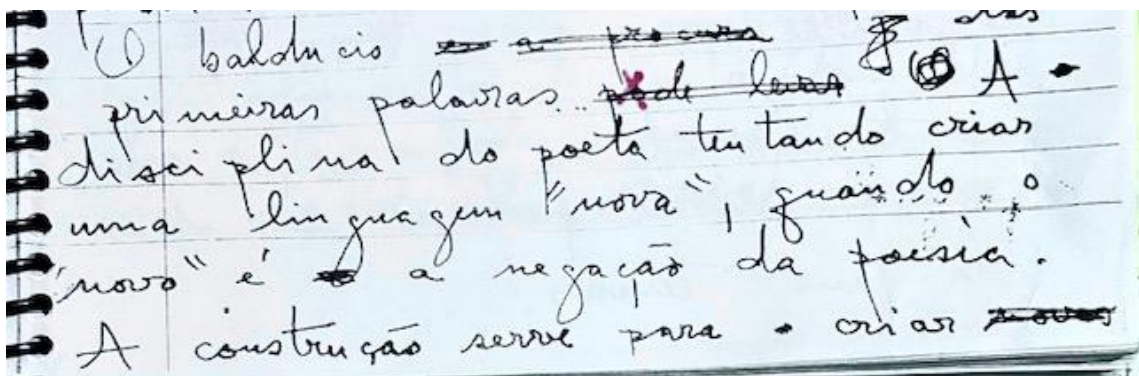 O balducio a procura das
primeiras palavras.. pode levar A
disciplina do poeta tentando criar
uma linguagem "nova", quando o
"novo" é a negação da poesia.
A construção serve para criar